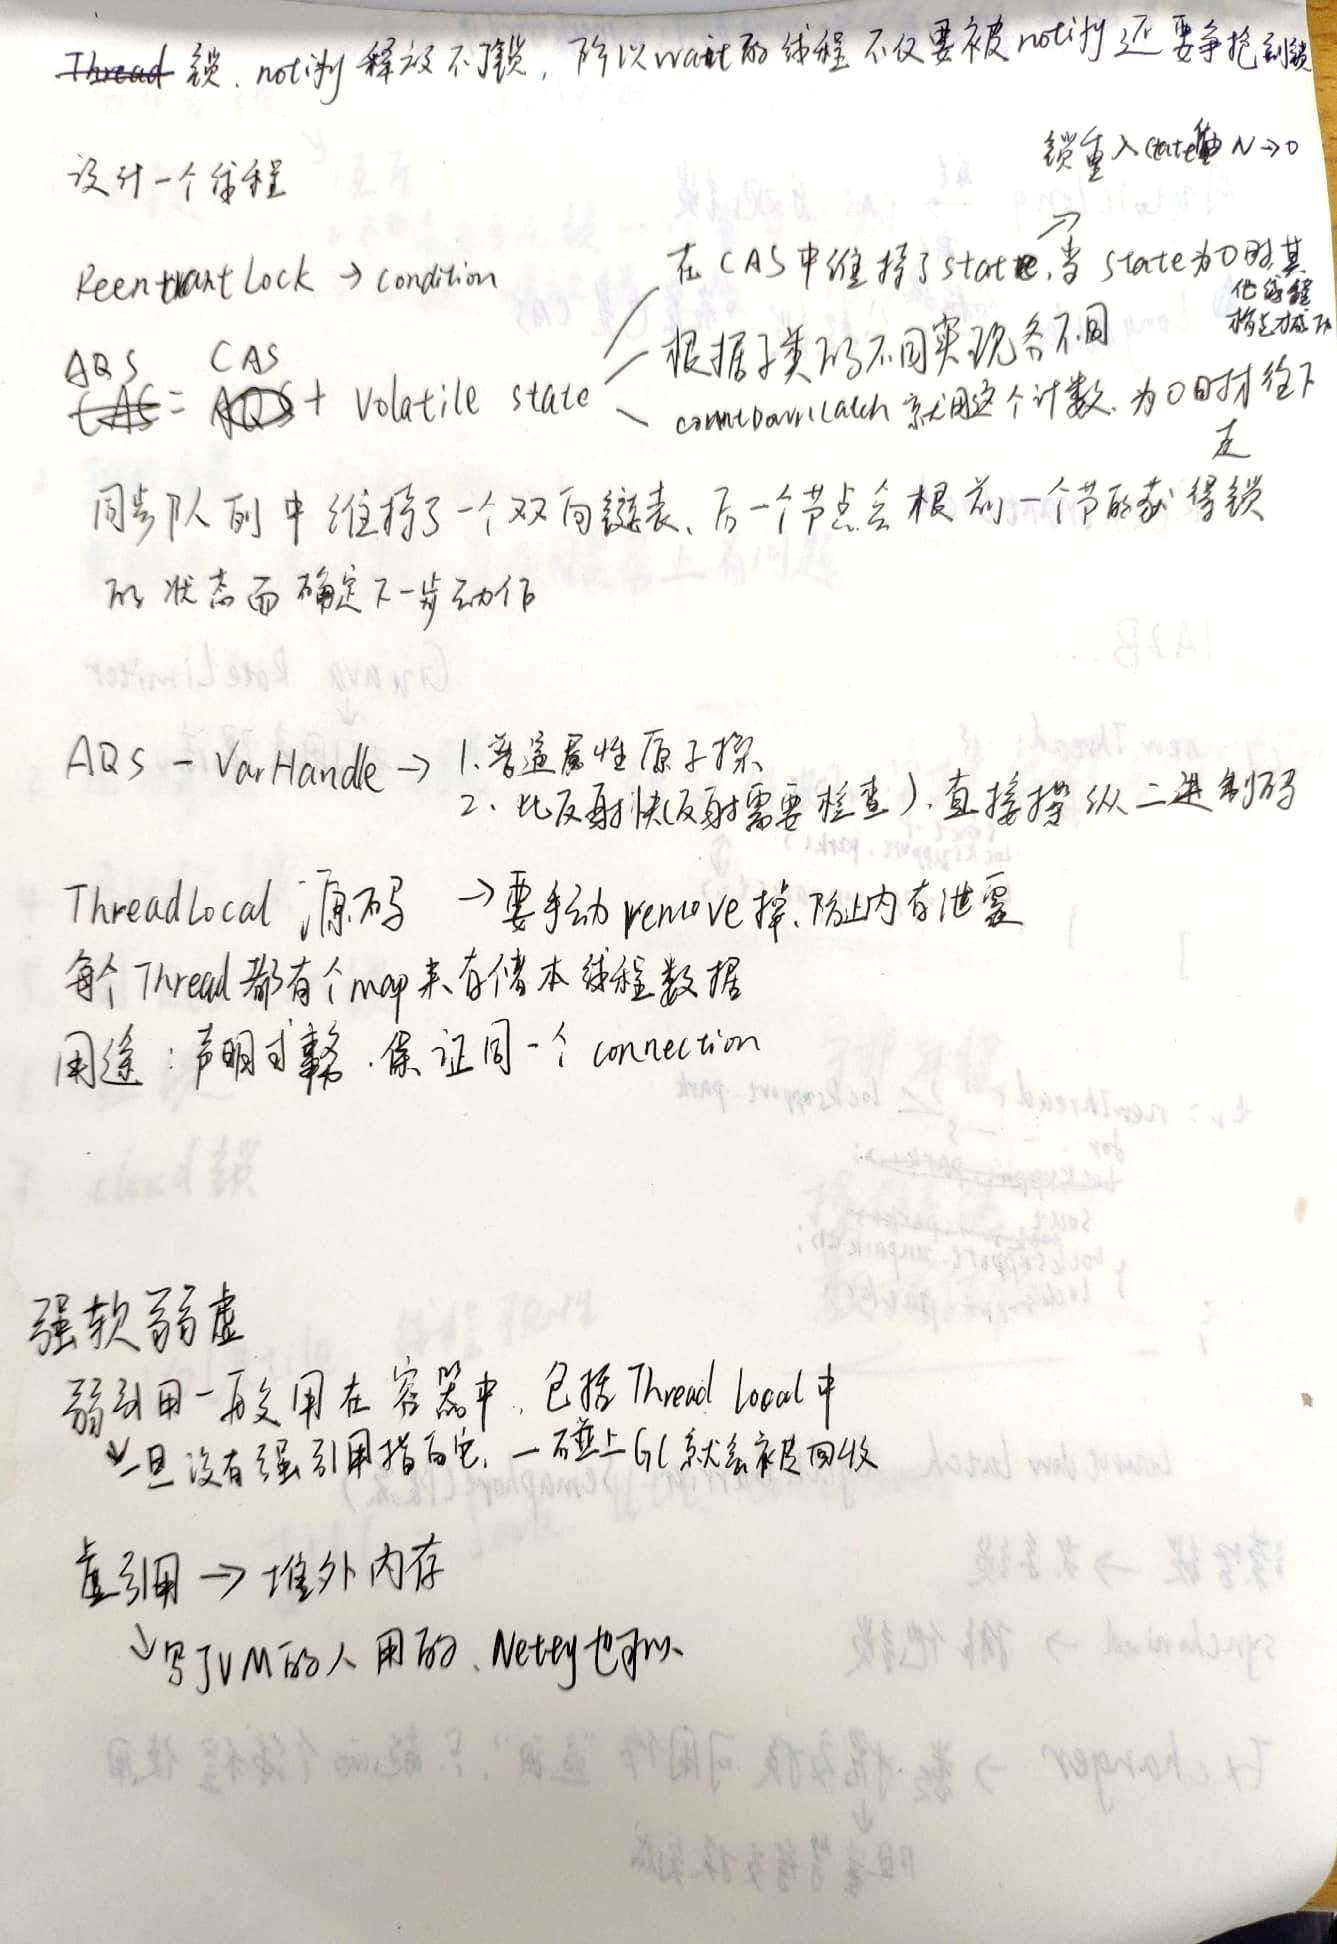 Thread 锁. notify 释放不了锁, 所以wait的线程不仅要被notify还要争抢到锁
锁重入state由N→0
设计一个线程
ReentrantLock → condition
在CAS中维持了state, 当state为0时其
他线程
AQS CAS
CAS = AQS + Volatile state
根据子类的不同实现各不同
countDownLatch 就用这个计数. 为0时才往下
走
同步队列中维持了一个双向链表、后一个节点会根前一个节的获得锁
的状态而确定下一步动作
AQS - VarHandle → 1. 普通属性原子操
2. 比反射快(反射需要检查), 直接操纵二进制码
ThreadLocal 源码 → 要手动remove掉、防止内存泄露
每个Thread都有个map来存储本线程数据
用途: 声明式事务. 保证同一个connection
强软弱虚
弱引用一般用在容器中, 包括Thread Local中
↓一旦没有强引用指向它, 一碰上GC就会被回收
虚引用 → 堆外内存
↓写JVM的人用的、Netty也可以